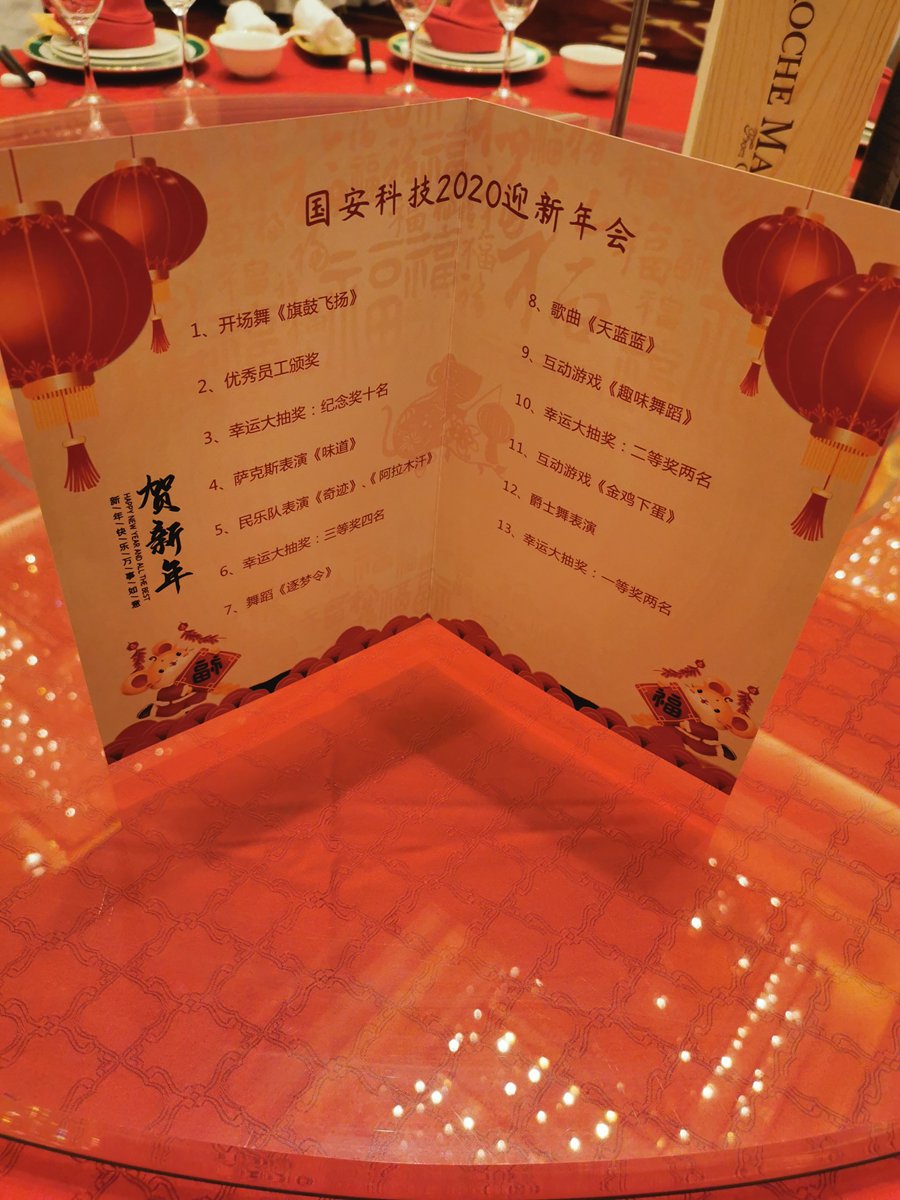 国安科技2020迎新年会
1、开场舞《旗鼓飞扬》
2、优秀员工颁奖
3、幸运大抽奖：纪念奖十名
4、萨克斯表演《味道》
5、民乐队表演《奇迹》、《阿拉木汗》
6、幸运大抽奖：三等奖四名
7、舞蹈《逐梦令》
8、歌曲《天蓝蓝》
9、互动游戏《趣味舞蹈》
10、幸运大抽奖：二等奖两名
11、互动游戏《金鸡下蛋》
12、爵士舞表演
13、幸运大抽奖：一等奖两名
贺新年
HAPPY NEW YEAR AND ALL THE BEST
新/年/快/乐/万/事/如/意
福
福
OCHE MA